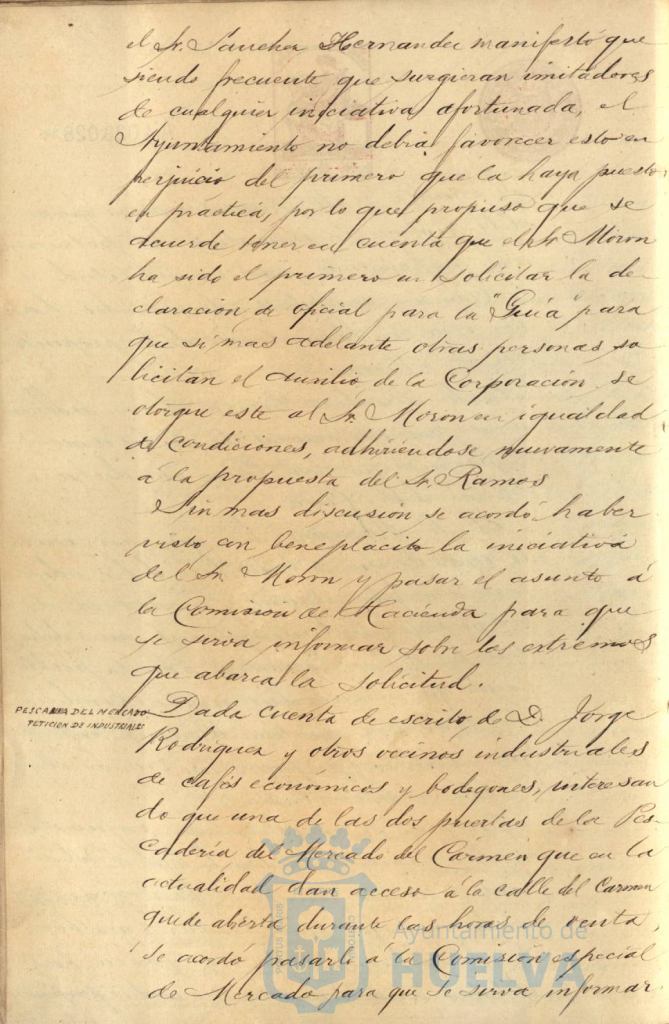 el Sr. Sanchez Hernandez manifestó que
siendo frecuente que surgieran imitadores
de cualquier iniciativa afortunada, el
Ayuntamiento no debia favorecer esto en
perjuicio del primero que la haya puesto
en práctica, por lo que propuso que se
acuerde tener en cuenta que el Sr. Moron
ha sido el primero en solicitar la de
claración de oficial para la "Guía" para
que si mas adelante otras personas so
licitan el auxilio de la Corporación se
otorgue este al Sr. Moron en igualdad
de condiciones, adhiriéndose nuevamente
á la propuesta del Sr. Ramos
Sin mas discusión se acordó haber
visto con beneplácito la iniciativa
del Sr. Moron y pasar el asunto á
la Comisión de Hacienda para que
se sirva informar sobre los extremos
que abarca la solicitud.
PESCADERIA DEL MERCADO
PETICION DE INDUSTRIALES
Dada cuenta de escrito de D. Jorge
Rodriguez y otros vecinos industriales
de cafés económicos y bodegones, interesan
do que una de las dos puertas de la Pes-
cadería del Mercado del Cármen que en la
actualidad dan acceso á la calle del Carmen
quede abierta durante las horas de venta,
se acordo pasarlo á la Comisión especial
de Mercado para que se sirva informar
Ayuntamiento de
HUELVA